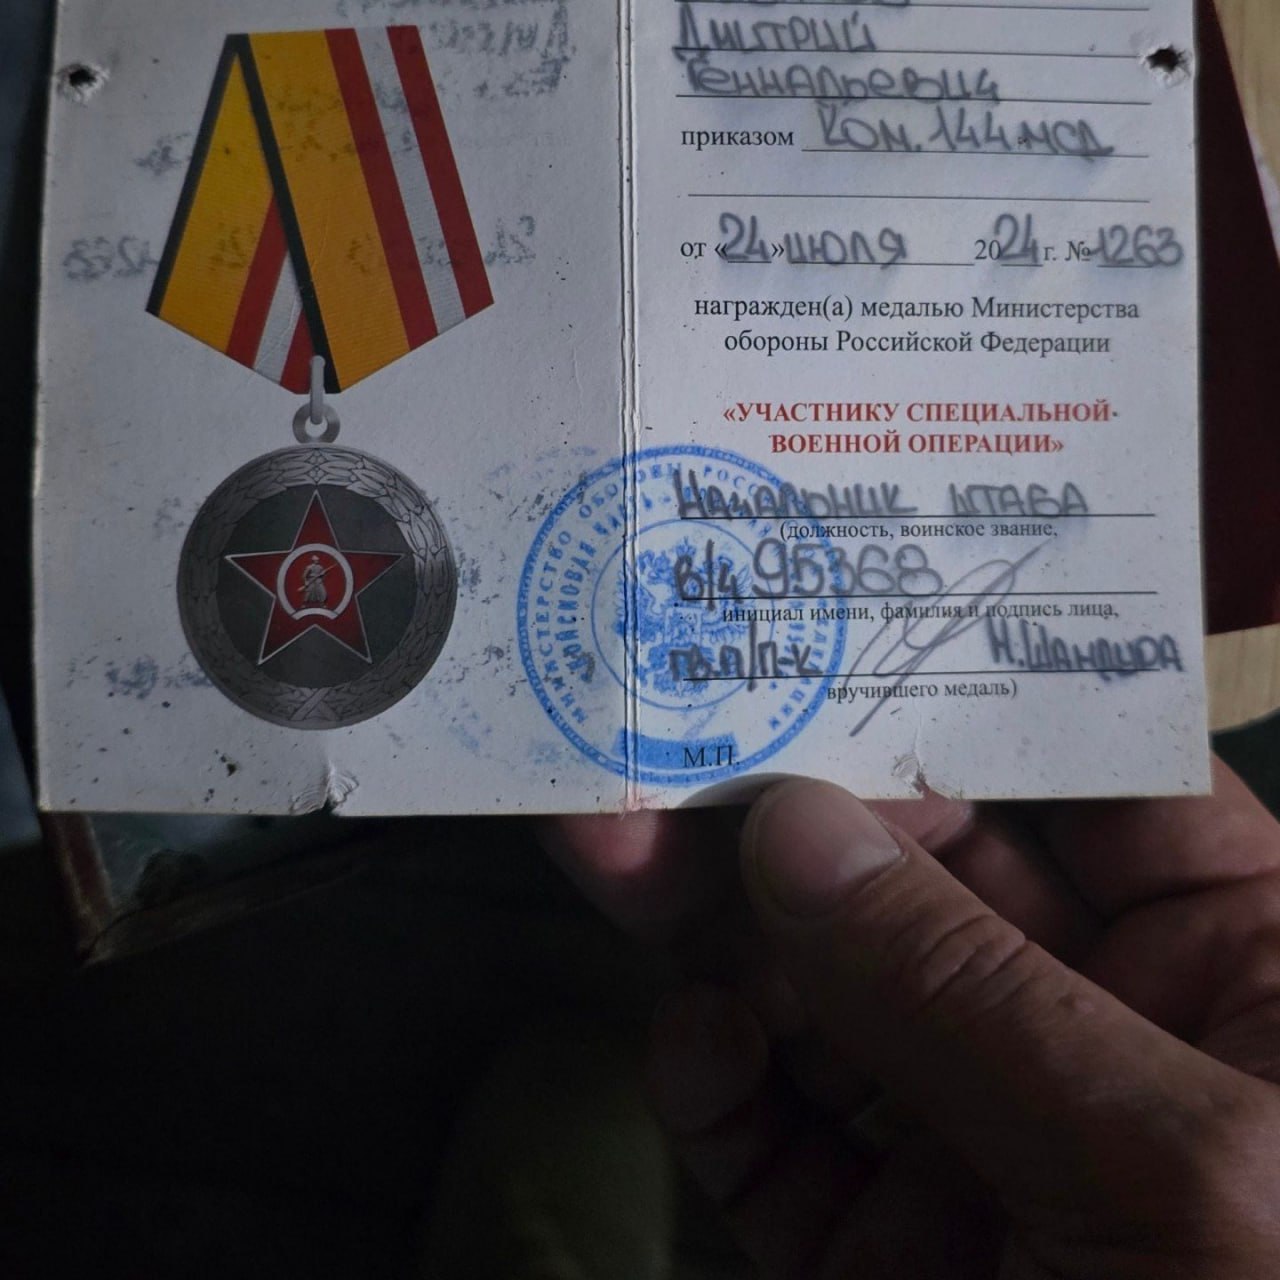 Дмитрий
Геннадьевич
приказом Ком. 144 мсд
от «24» июля 2024 г. № 1263
награжден(а) медалью Министерства
обороны Российской Федерации
«УЧАСТНИКУ СПЕЦИАЛЬНОЙ
ВОЕННОЙ ОПЕРАЦИИ»
Начальник штаба
(должность, воинское звание,
в/ч 95368
инициал имени, фамилия и подпись лица,
гв.п/п-к Н.Шандура
вручившего медаль)
М.П.
МИНИСТЕРСТВО ОБОРОНЫ РОССИЙСКОЙ ФЕДЕРАЦИИ
ВОЙСКОВАЯ ЧАСТЬ